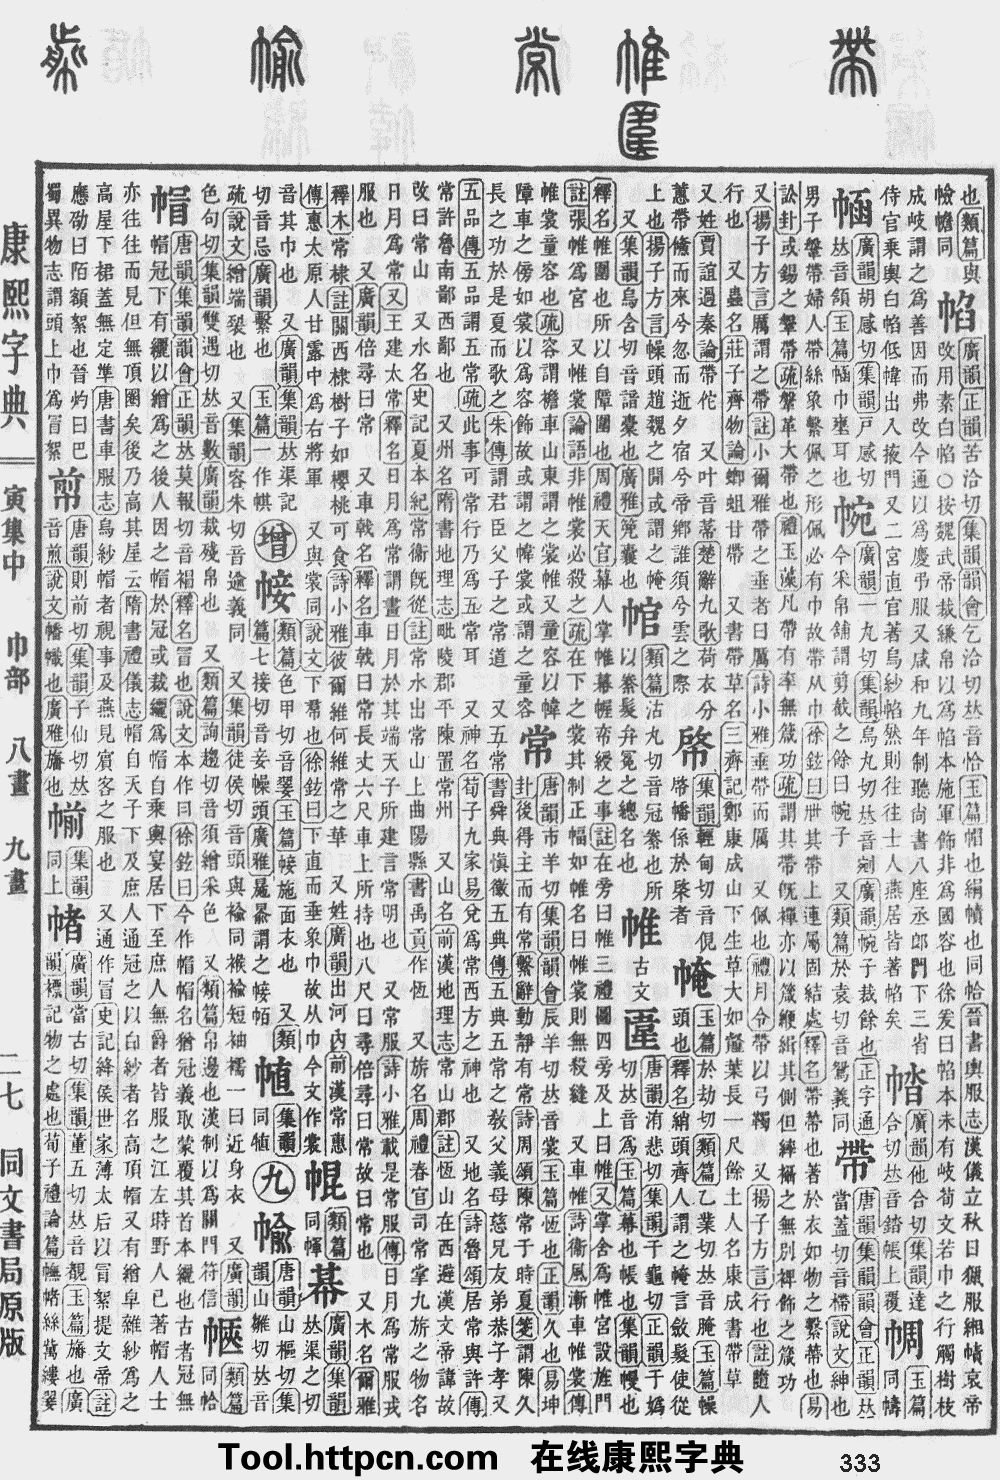 帶 帷 匰 常 㡏 
康熙字典 寅集中 巾部 八畫 九畫 二七 同文書局原版
也類篇與幨同 帢 廣韻正韻苦洽切集韻韻會乞洽切𠀤音恰玉篇帽也絹幘也同帢晉書輿服志漢儀立秋日獵服緗幘哀帝改用素白帢○按魏武帝裁縑帛以爲帢本施軍飾非爲國容也徐爰曰帢本未有岐荀文若巾之行觸樹枝
成岐謂之爲善因而弗改今通以爲慶弔服又咸和九年制聽尚書八座丞郎門下三省侍官乘輿白帢低幃出入掖門又二宮直官著烏紗帢然則往往士人燕居皆著帢矣 㧺 廣韻他合切集韻達合切𠀤音錔帳上覆 㡏 玉篇同幬
㡔 廣韻胡感切集韻戸感切𠀤音頷玉篇㡔巾壅耳也 帵 廣韻一九切集韻烏九切𠀤音剜廣韻帵子裁餘也正字通今宋帛舖謂剪截之餘曰帵子 又類篇於袁切音鴛義同 帶 唐韻集韻韻會正韻𠀤當蓋切音㿃說文紳也
男子鞶帶婦人帶絲象繫佩之形佩必有巾故帶从巾徐鉉曰丗其帶上連屬固結處釋名帶蔕也著於衣如物之繫蔕也易訟卦或錫之鞶帶疏鞶革大帶也禮玉藻凡帶有率無箴功疏謂其帶旣襌亦以箴緶緝其側但繂襵之無別裨飾之箴功
又揚子方言厲謂之帶註小爾雅帶之垂者曰厲詩小雅垂帶而厲 又佩也禮月令帶以弓韣 又揚子方言行也註隨人行也 又蟲名莊子齊物論蝍蛆甘帶 又書帶草名三齊記鄭康成山下生草大如䪥葉長一尺餘土人名康成書帶草
又姓賈誼過秦論帶佗 又叶音蔕楚辭九歌荷衣兮蕙帶儵而來兮忽而逝夕宿兮帝鄉誰須兮雲之際 㡂 集韻輕甸切音俔啓幡係於棨者 㡋 玉篇於劫切類篇乙業切𠀤音腌玉篇幧頭也釋名綃頭齊人謂之㡋言斂髮使從
上也揚子方言幧頭趙魏之閒或謂之㡋 又集韻烏含切音諳嚢也廣雅篼囊也 㡀 類篇沽丸切音冠絭也所以絭髮弁冕之總名也 帷 古文𠥎 唐韻洧悲切集韻于龜切正韻于嬀切𠀤音爲玉篇幕也帳也集韻幔也
釋名帷圍也所以自障圍也周禮天官幕人掌帷幕幄帟綬之事註在旁曰帷三禮圖四旁及上曰帷又掌舍爲帷宮設旌門註張帷爲宮 又帷裳論語非帷裳必殺之疏在下之裳其制正幅如帷名曰帷裳則無殺縫 又車帷詩衞風漸車帷裳傳
帷裳童容也疏容謂襜車山東謂之裳帷又童容以幃障車之傍如裳以爲容飾故或謂之幃裳或謂之童容 常 唐韻市羊切集韻韻會辰羊切𠀤音裳玉篇恆也正韻久也易坤卦後得主而有常繫辭動靜有常詩周頌陳常于時夏箋謂陳久
長之功於是夏而歌之朱傳謂君臣父子之常道 又五常書舜典愼徽五典傳五典五常之敎父義母慈兄友弟恭子孝又五品傳五品謂五常疏此事可常行乃爲五常耳 又神名荀子九家易兌爲常西方之神也 又地名詩魯頌居常與許傳
常許魯南鄙西鄙 又州名隋書地理志毗陵郡平陳置常州 又山名前漢地理志常山郡註恆山在西避漢文帝諱故改曰常山 又水名史記夏本紀常衞旣從註常水出常山上曲陽縣書禹貢作恆 又旂名周禮春官司常掌九旂之物名
日月爲常又王建太常釋名日月爲常謂畫日月於其端天子所建言常明也 又常服詩小雅載是常服傳日月爲常服戎服也 又廣韻倍尋曰常 又車戟名釋名車戟曰常長丈六尺車上所持也八尺曰尋倍尋曰常故曰常也 又木名爾雅
釋木常棣註關西棣樹子如櫻桃可食詩小雅彼爾維何維常之華 又姓廣韻出河內前漢常惠傳惠太原人甘露中爲右將軍 又與裳同說文下帬也徐鉉曰下直而垂象巾故从巾今文作裳 㡓 類篇同㡓 帺 廣韻集韻𠀤渠之切
音其巾也 又廣韻集韻𠀤渠記切音忌廣韻繫也 玉篇一作帺 增 㡐 類篇色甲切音翣玉篇㡐施面衣也 又類篇七接切音妾幧頭廣雅㬥㬥謂之㡐帞 㡁 集韻同㡁 九 㡏 唐韻山樞切集韻山雛切𠀤音
疏說文繒端裂也 又集韻容朱切音逾義同 又集韻徒侯切音頭與褕同褕短袖襦一曰近身衣 又廣韻色句切集韻雙遇切𠀤音數廣韻裁殘帛也 又類篇詢趨切音須繒采色 又類篇帛邊也漢制以爲關門符信 㥦 類篇同帢
帽 唐韻集韻韻會正韻𠀤莫報切音𧛕釋名冒也說文本作冃徐鉉曰今作帽帽名猶冠義取蒙覆其首本纚也古者冠無帽冠下有纚以繒爲之後人因之帽於冠或裁纚爲帽自乘輿宴居下至庶人無爵者皆服之江左時野人已著帽人士
亦往往而見但無頂圈矣後乃高其屋云隋書禮儀志帽自天子下及庶人通冠之以白紗者名高頂帽又有繒皁雜紗爲之高屋下裙蓋無定準唐書車服志烏紗帽者視事及燕見賓客之服也 又通作冒史記絳侯世家薄太后以冒絮提文帝註
應劭曰陌額絮也晉灼曰巴蜀異物志謂頭上巾爲冒絮 㡐 唐韻則前切集韻子仙切𠀤音煎說文幡幟也廣雅旛也 㡐 集韻同上 帾 廣韻當古切集韻董五切𠀤音覩玉篇旛也廣韻標記物之處也荀子禮論篇幠帾絲歶縷翣
Tool.httpcn.com 在线康熙字典 333